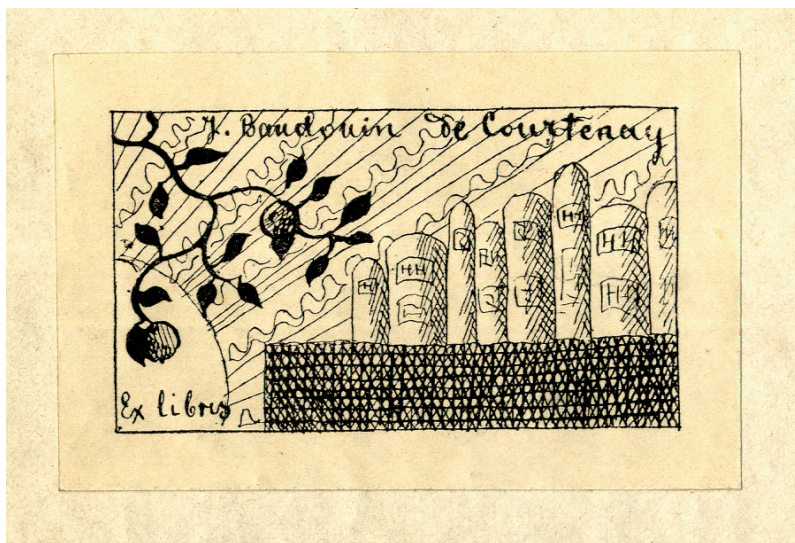 J. Baudouin de Courtenay
Ex libris